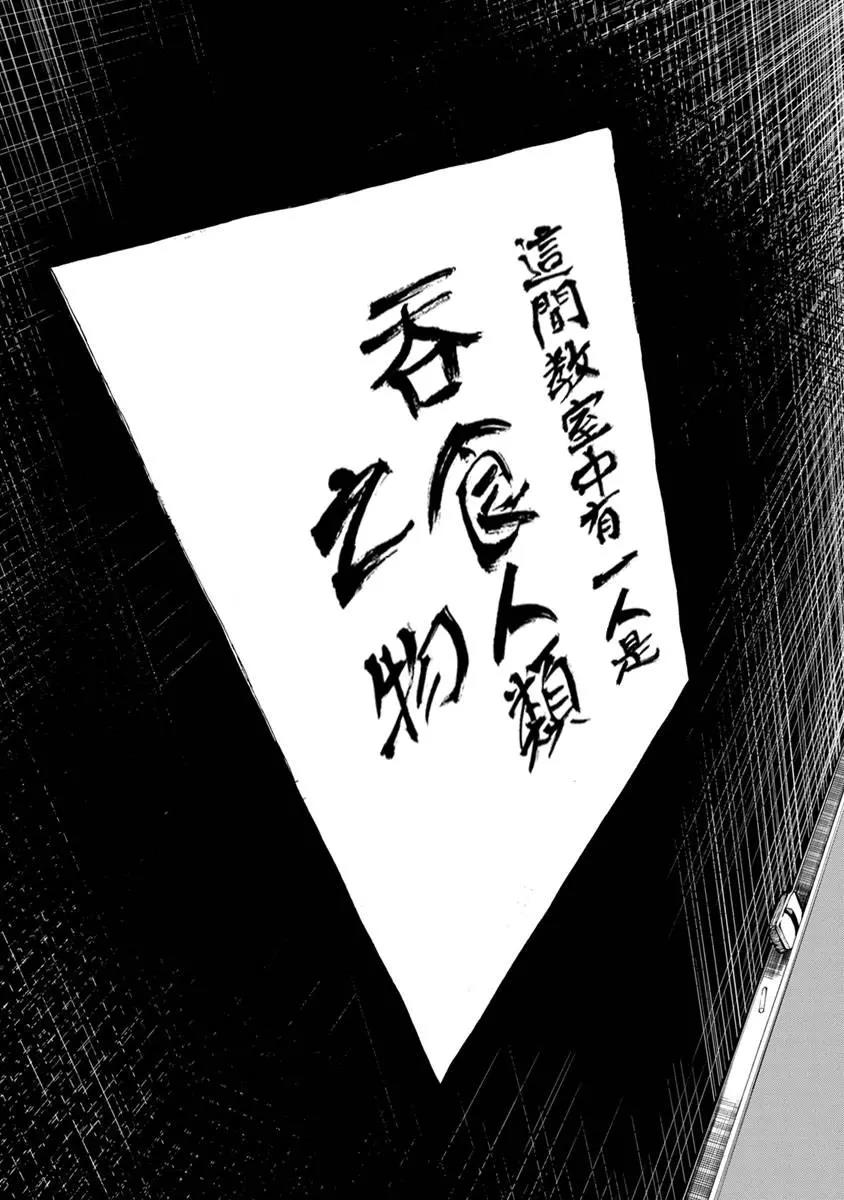 這間教室中有一人是
吞食人類
之物